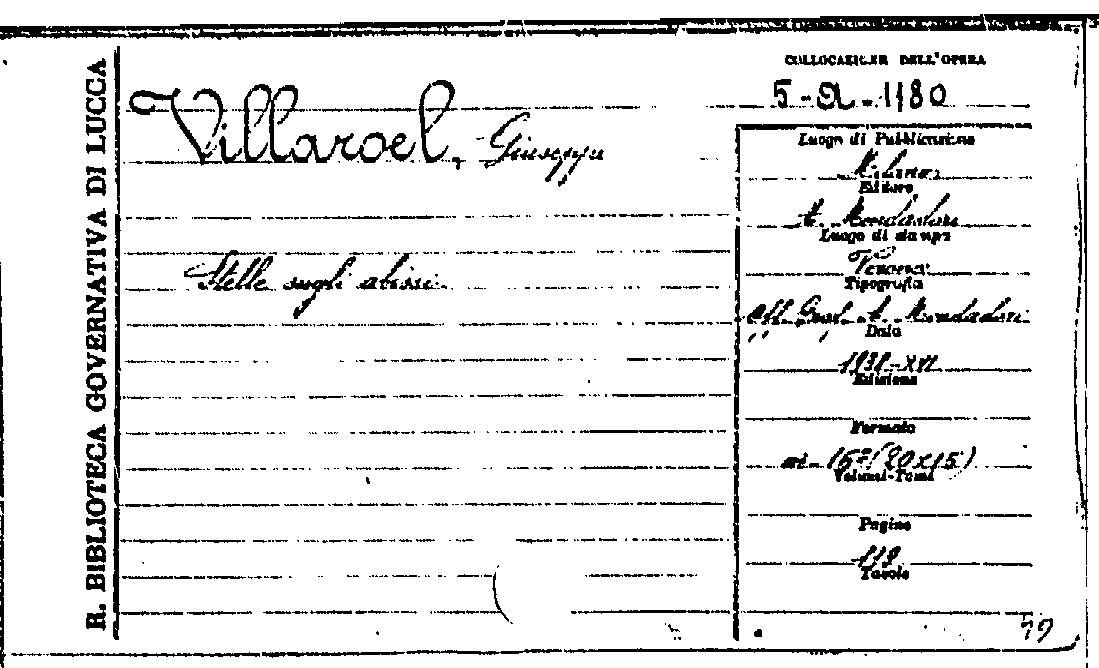 R. BIBLIOTECA GOVERNATIVA DI LUCCA
Villaroel, Giuseppe
Stelle sugli abissi
COLLOCAZIONE DELL'OPERA
5-A-1180
Luogo di Pubblicazione
Milano
Editore
A. Mondadori
Luogo di stampa
Verona
Tipografia
Off. Graf. A. Mondadori
Data
1938-XVI
Edizione
Formato
in-16º (20x15)
Volumi-Tomi
Pagine
Tavole